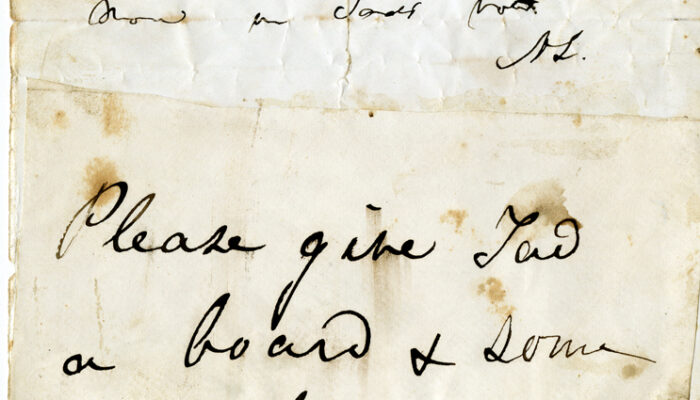 Tads
A.L.
Please give Tad
a board & some